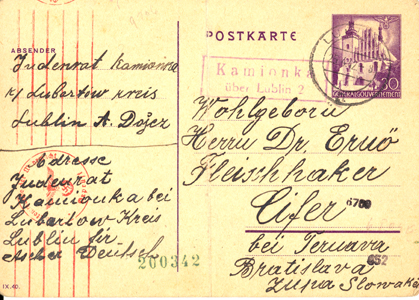 POSTKARTE
ABSENDER
Judenrat Kamionka
p/ Lubartow Kreis
Lublin A. Dożez
Kamionka
über Lublin 2
30
GENERALGOUVERNEMENT
Wohlgeborn
Herrn Dr. Ernö
Fleischhaker
Cifer
6780
bei Ternava
652
Bratislava
Zupa Slowaki
Adresse
Judenrat
Kamionka bei
Lubartow Kreis
Lublin für
Ascher Deutsch
200342
IX.40.